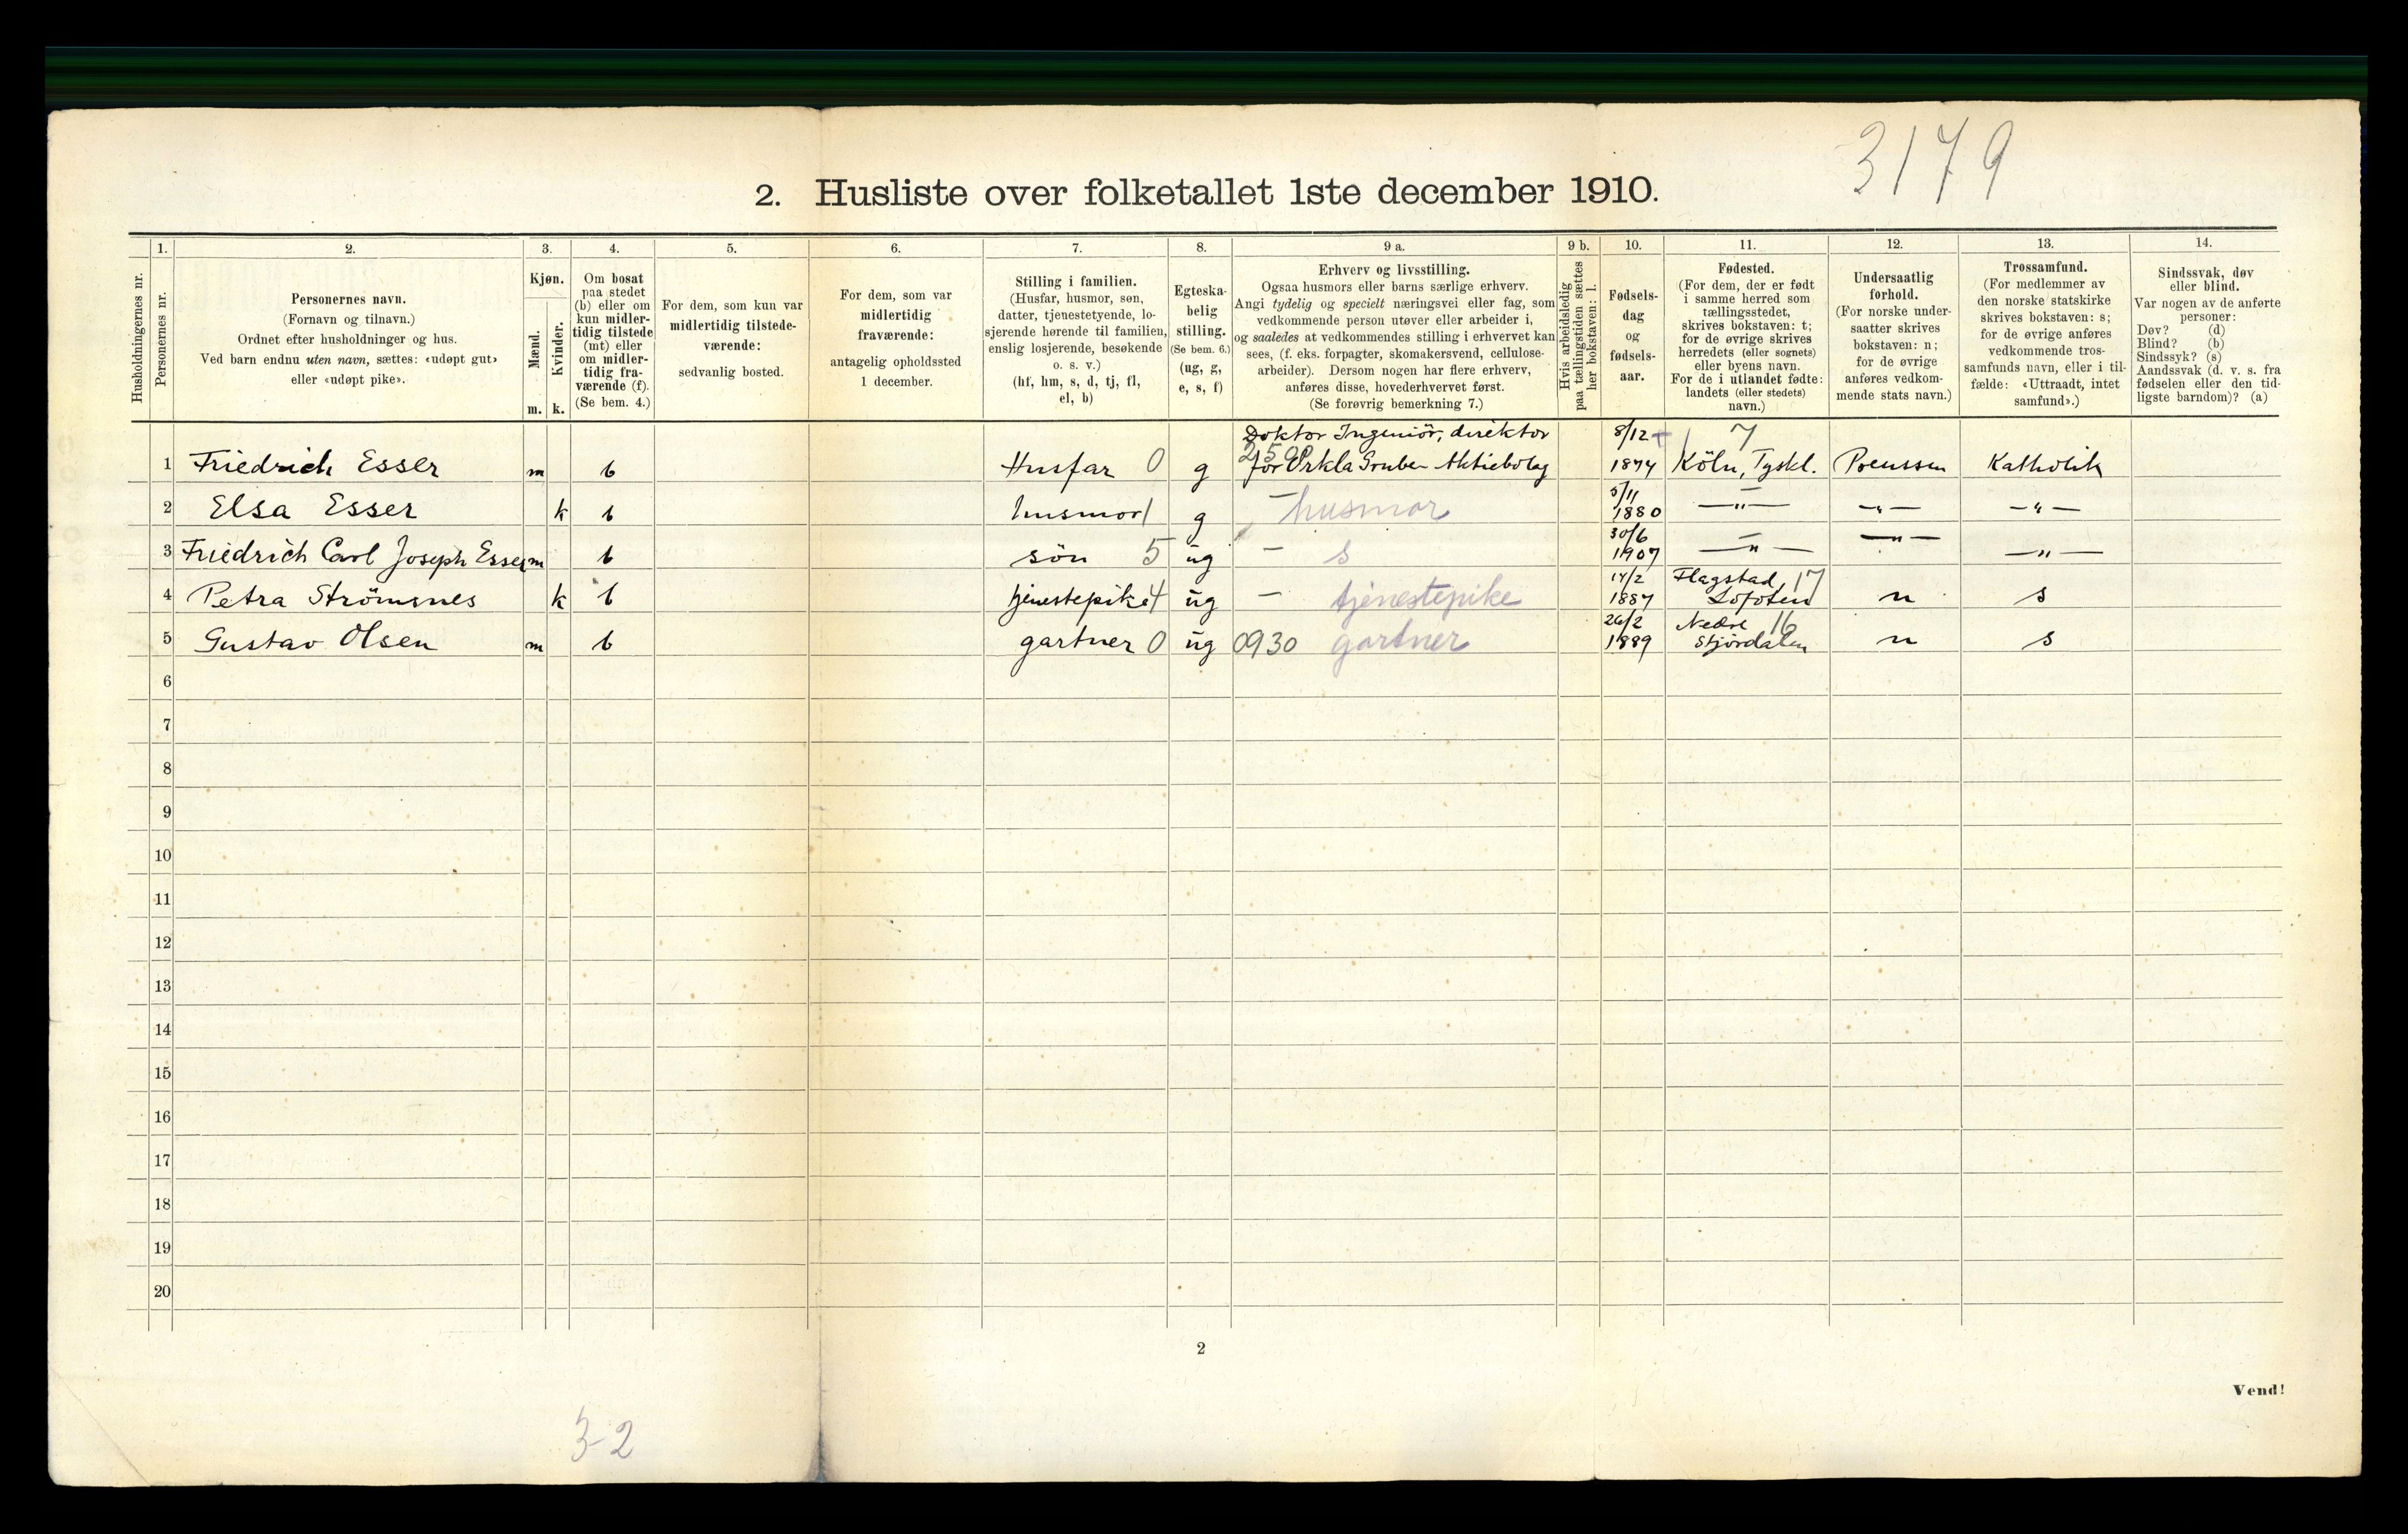 3179
2. Husliste over folketallet 1ste december 1910.
Husholdningernes nr.
1.
Personernes nr.
2.
Personernes navn.
(Fornavn og tilnavn.)
Ordnet efter husholdninger og hus.
Ved barn endnu uten navn, sættes: «udøpt gut»
eller «udøpt pike».
3.
Kjøn.
Mænd.
Kvinder.
m. k.
4.
Om bosat
paa stedet
(b) eller om
kun midler-
tidig tilstede
(mt) eller
om midler-
tidig fra-
værende (f).
(Se bem. 4.)
5.
For dem, som kun var
midlertidig tilstede-
værende:
sedvanlig bosted.
6.
For dem, som var
midlertidig
fraværende:
antagelig opholdssted
1 december.
7.
Stilling i familien.
(Husfar, husmor, søn,
datter, tjenestetyende, lo-
sjerende hørende til familien,
enslig losjerende, besøkende
o. s. v.)
(hf, hm, s, d, tj, fl,
el, b)
8.
Egteska-
belig
stilling.
(Se bem. 6.)
(ug, g,
e, s, f)
9 a.
Erhverv og livsstilling.
Ogsaa husmors eller barns særlige erhverv.
Angi tydelig og specielt næringsvei eller fag, som
vedkommende person utøver eller arbeider i,
og saaledes at vedkommendes stilling i erhvervet kan
sees, (f. eks. forpagter, skomakersvend, cellulose-
arbeider). Dersom nogen har flere erhverv,
anføres disse, hovederhvervet først.
(Se forøvrig bemerkning 7.)
9 b.
Hvis arbeidsledig
paa tællingstiden sættes
her bokstaven: l.
10.
Fødsels-
dag
og
fødsels-
aar.
11.
Fødested.
(For dem, der er født
i samme herred som
tællingsstedet,
skrives bokstaven: t;
for de øvrige skrives
herredets (eller sognets)
eller byens navn.
For de i utlandet fødte:
landets (eller stedets)
navn.)
12.
Undersaatlig
forhold.
(For norske under-
saatter skrives
bokstaven: n;
for de øvrige
anføres vedkom-
mende stats navn.)
13.
Trossamfund.
(For medlemmer av
den norske statskirke
skrives bokstaven: s;
for de øvrige anføres
vedkommende tros-
samfunds navn, eller i til-
fælde: «Uttraadt, intet
samfund».)
14.
Sindssvak, døv
eller blind.
Var nogen av de anførte
personer:
Døv? (d)
Blind? (b)
Sindssyk? (s)
Aandssvak (d. v. s. fra
fødselen eller den tid-
ligste barndom)? (a)
Doktor Ingeniör, direktör 8/12 7
1 Friedrich Esser m b Husfar 0 g for Orkla Grube-Aktiebolag 1874 Köln, Tyskl. Preussen Katholik
5/11
2 Elsa Esser k b husmor 1 g — husmor 1880 —"— —"— —"—
30/6
3 Friedrich Carl Joseph Esser m b sön 5 ug — s 1907 —"— —"— —"—
14/2 Flagstad, 17
4 Petra Strömsnes k b tjenestepike 4 ug — tjenestepike 1887 Lofoten n s
26/2 Nedre 16
5 Gustav Olsen m b gartner 0 ug 0930 gartner 1889 Stjördalen n s
6
7
8
9
10
11
12
13
14
15
16
17
18
19
20
2
Vend!
3-2